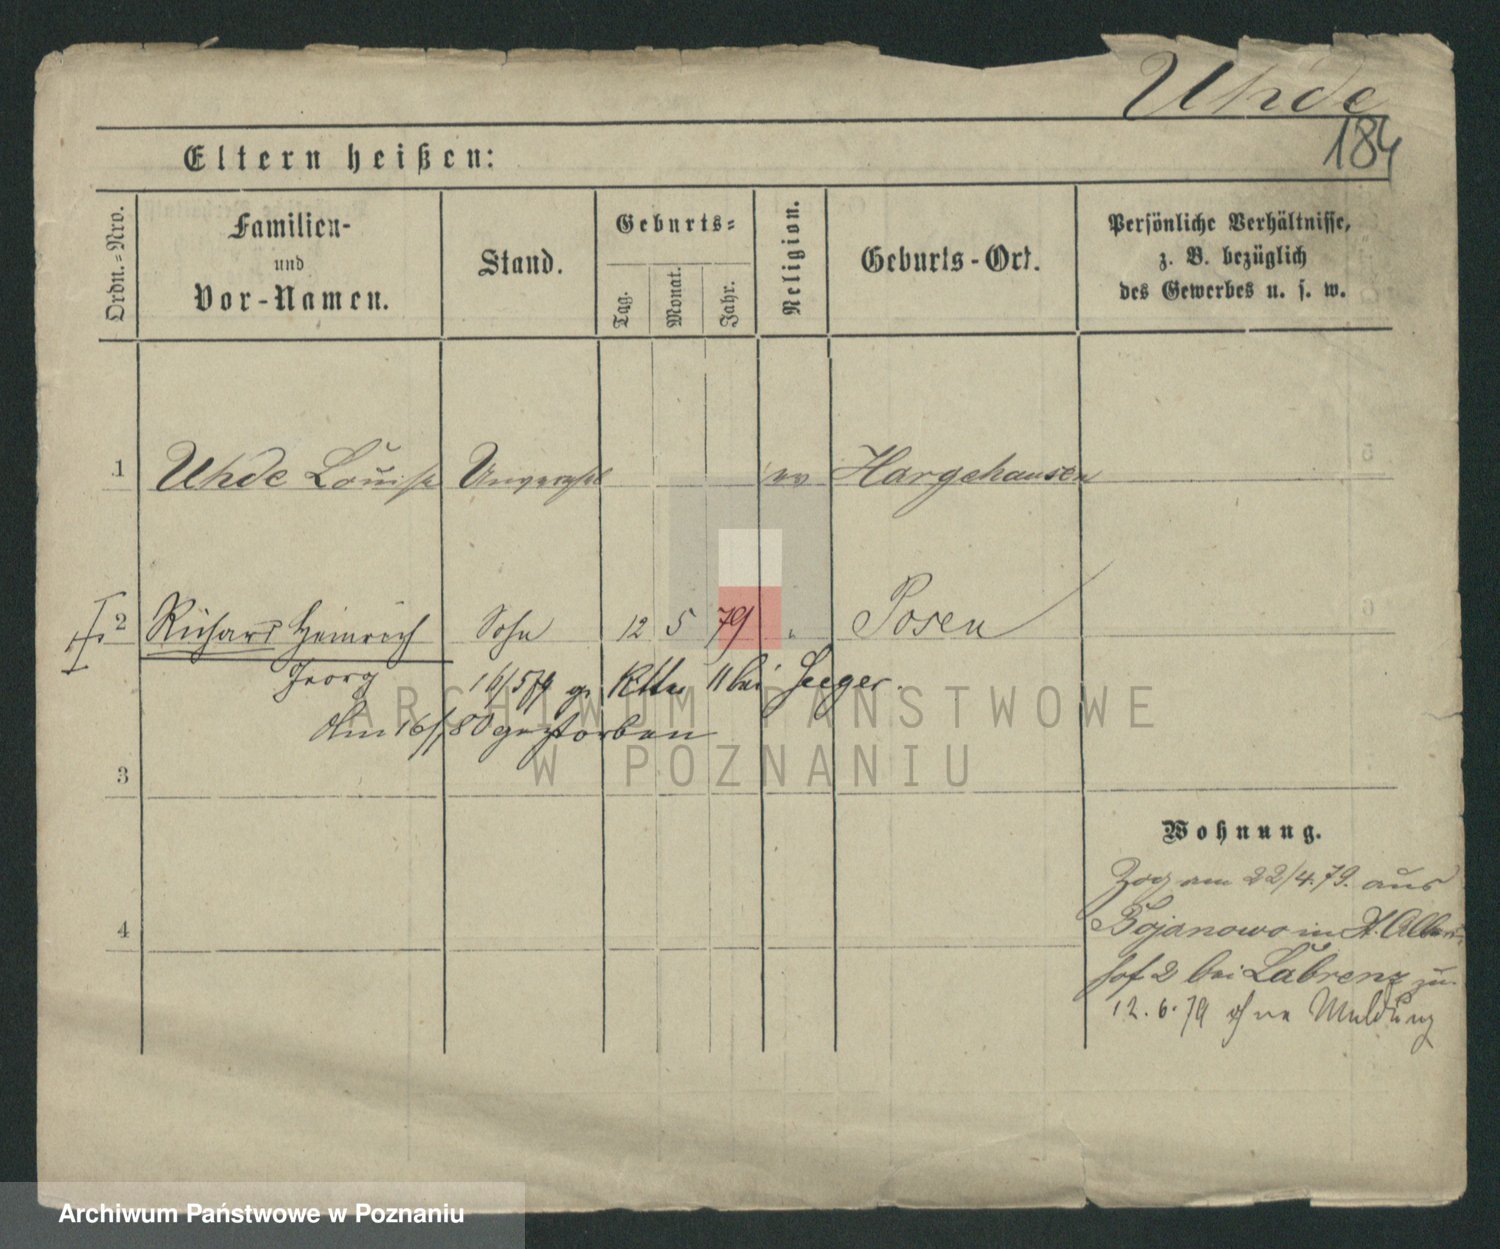 Uhde
184
Eltern heißen:
Ordn.-Nro.
Familien-
und
Vor-Namen.
Stand.
Geburts-
Tag.
Monat.
Jahr.
Religion.
Geburts-Ort.
Persönliche Verhältnisse,
z. B. bezüglich
des Gewerbes u. s. w.
1 Uhde Louise ev Hargehausen
2 Richard Heinrich Sohn 12 5 79 " Posen
Georg 16/5 79 bei Seeger.
Am 16/ 80 gestorben
3
4
Wohnung.
Zog am 22/4.79. aus
Bojanowo in
hof 2 bei Labrenz
12.6.79 ohne Meldung
ARCHIWUM PAŃSTWOWE
W POZNANIU
Archiwum Państwowe w Poznaniu